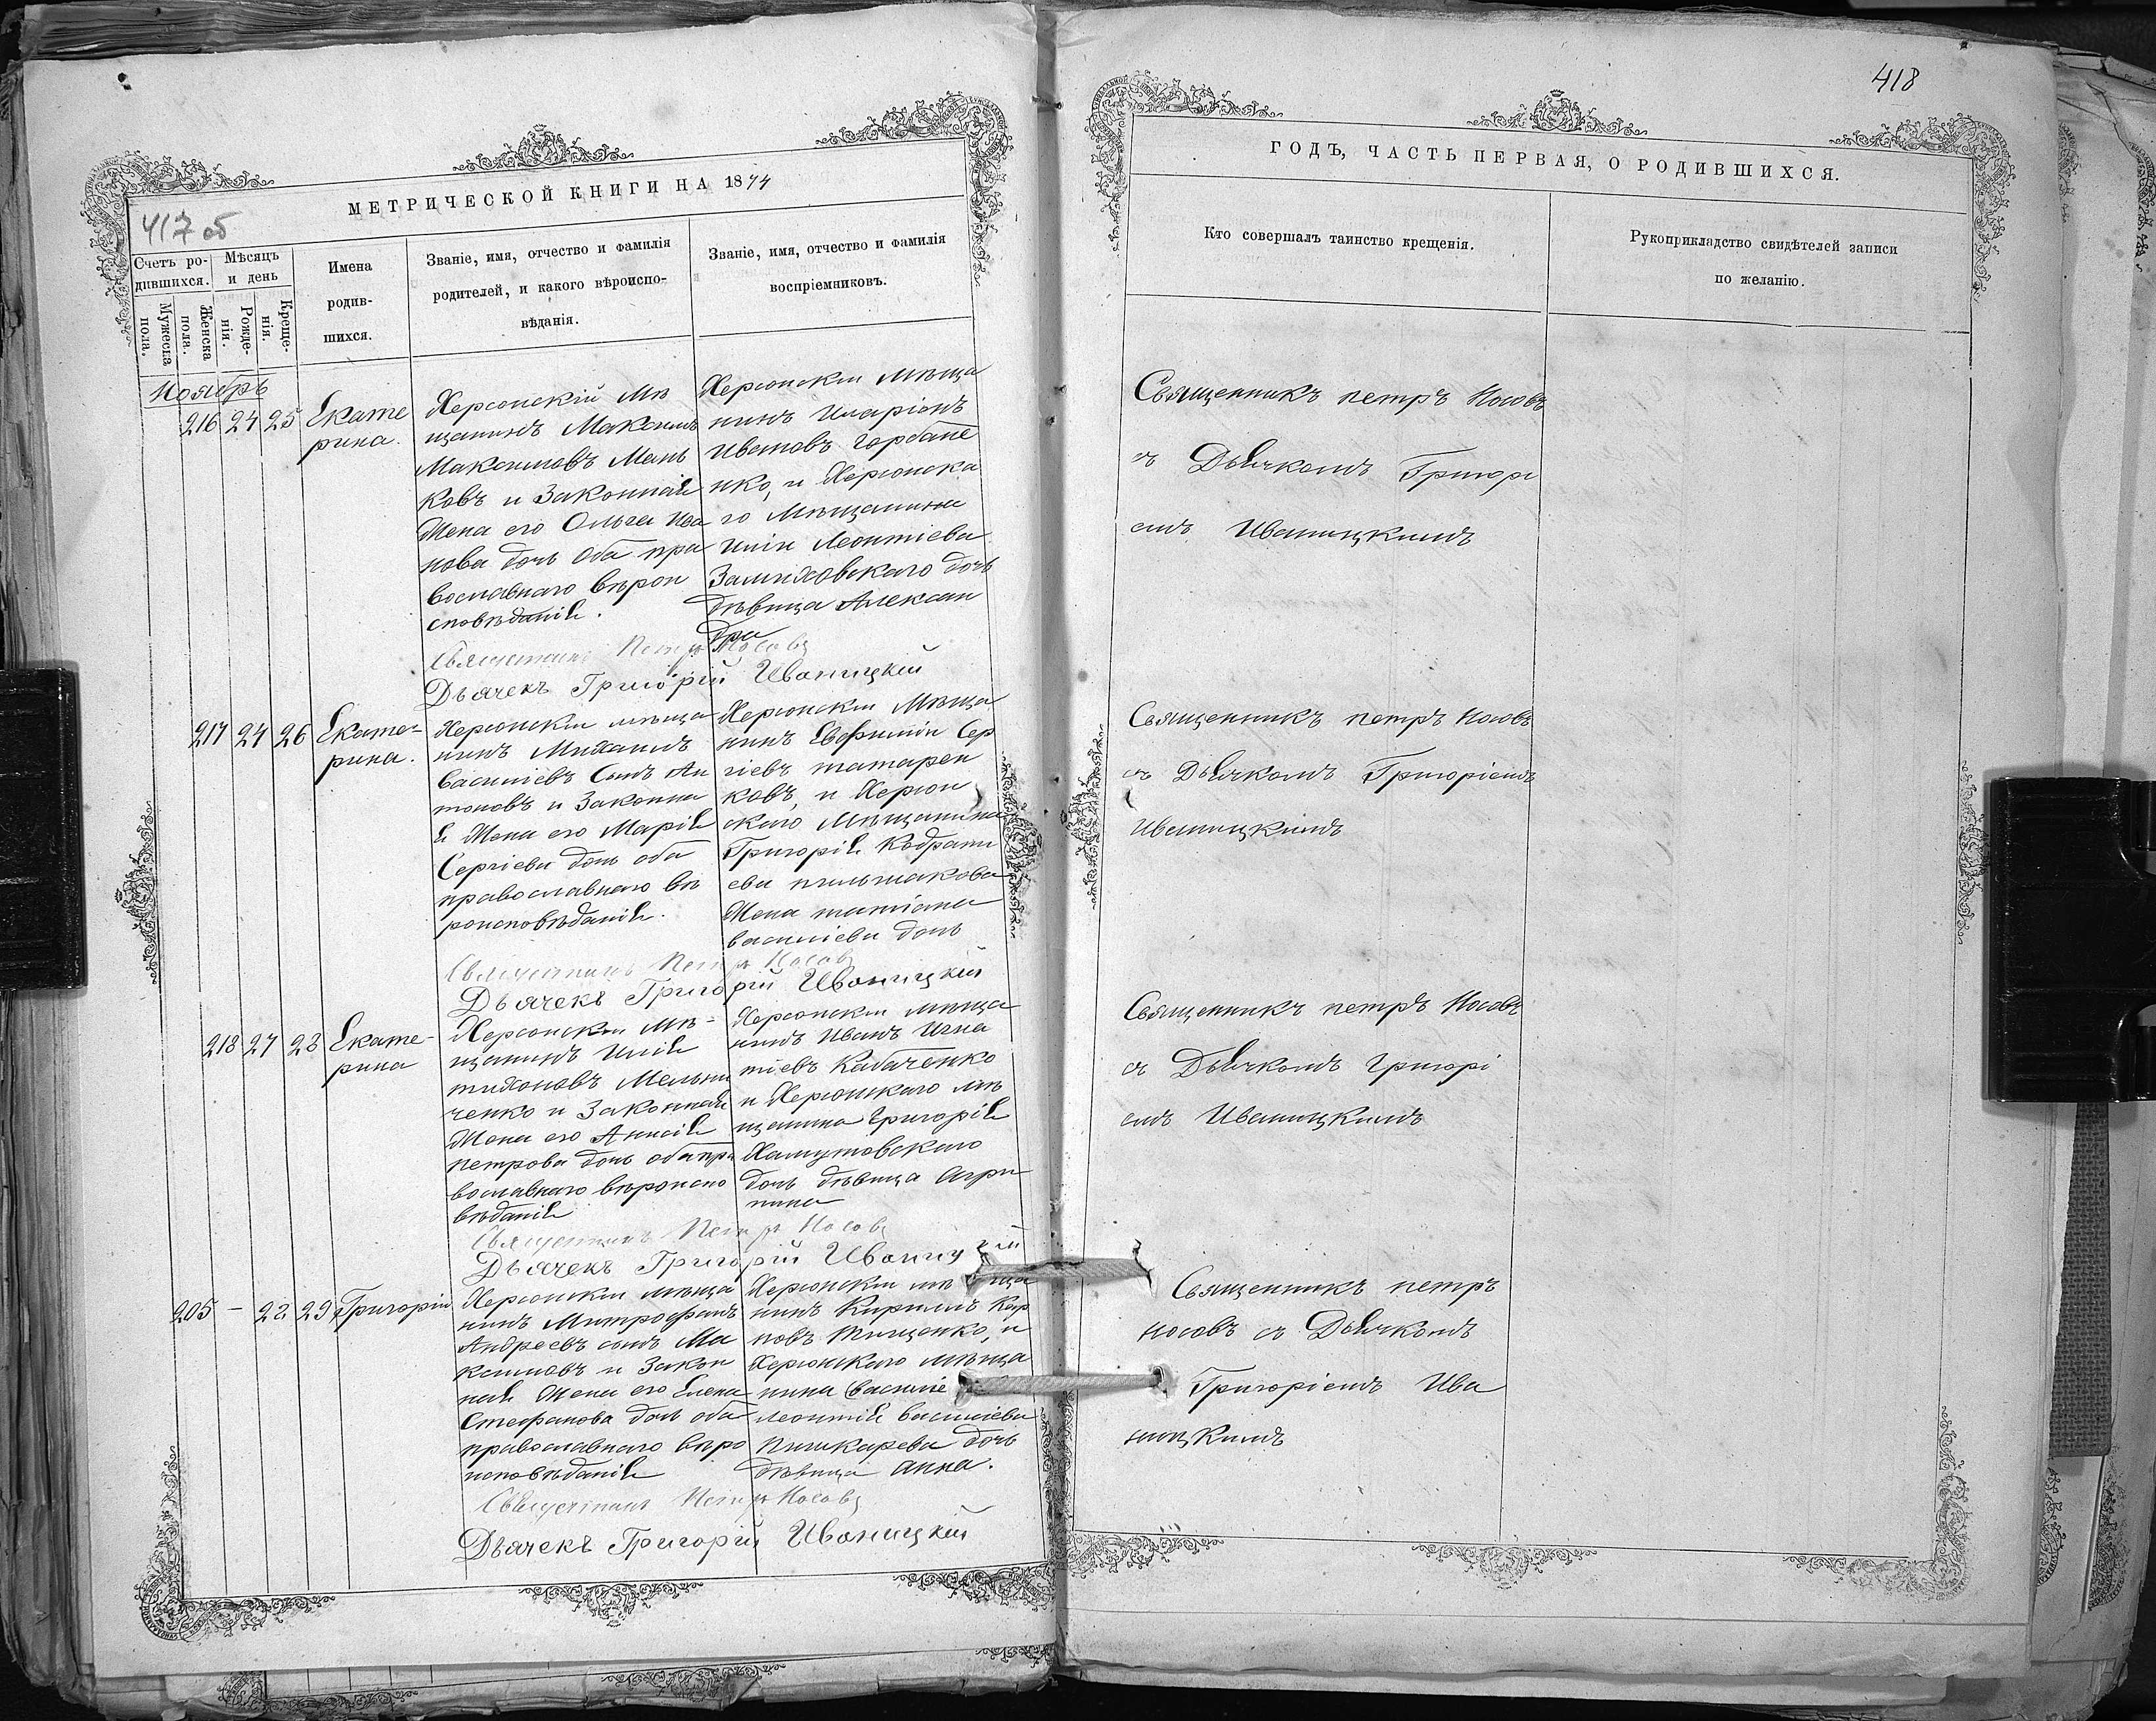 418
417 об
МЕТРИЧЕСКОЙ КНИГИ НА 1874
Счетъ ро-
дившихся.
Мужеска
пола.
Женска
пола.
Мѣсяцъ
и день
Рожде-
нія.
Креще-
нія.
Имена
родив-
шихся.
Званіе, имя, отчество и фамилія
родителей, и какого вѣроиспо-
вѣданія.
Званіе, имя, отчество и фамилія
воспріемниковъ.
Ноябрь
216 24 25
Екате
рина.
Херсонскій Мѣ
щанинъ Максимъ
Максимовъ Мань
ковъ и Законная
Жена его Ольга Ива
нова дочь Оба пра
вославнаго вѣрои
сповѣданія.
Херсонскій Мѣща
нинъ Иларіонъ
Ивановъ Горбане
нко, и Херсонска
го Мѣщанина
Иліи Леонтіева
дочь
дѣвица Алексан
дра
Священникъ Петръ Носовъ
Дьячекъ Григорій Иваницкій
217 24 26
Екате-
рина.
Херсонскій мѣща
нинъ Михаилъ
Василіевъ Сынъ Ан
тоновъ и Законна
я Жена его Марія
Сергіева дочь оба
православнаго вѣ
роисповѣданія.
Херсонскій Мѣща
нинъ Евфимій Сер
гіевъ татарен
ковъ, и Херсон
скаго Мѣщанина
Григорія
ева
Жена татіана
василіева дочь
Священникъ Петръ Носовъ
Дьячекъ Григорій Иваницкій
218 27 28
Екате-
рина
Херсонскій Мѣ-
щанинъ Илія
тихоновъ Мельни
ченко и Законная
Жена его Аннаія
петрова дочь оба пра
вославнаго вѣроиспо
вѣданія
Херсонскій мѣща
нинъ Иванъ Игна
тіевъ Кабаченко
и Херсонскаго мѣ
щанина Григорія
Хамутовскаго
дочь дѣвица Агри
пина
Священникъ Петръ Носовъ
Дьячекъ Григорій Иваницкій
205 — 28 29
Григорій
Херсонскій мѣща
нинъ Митрофанъ
Андреевъ сынъ Ма
ксимовъ и Закон
ная Жена его Елена
Стефанова дочь оба
православнаго вѣро
исповѣданія
Херсонскій мѣща
нинъ Кирилъ Кар
повъ тищенко, и
Херсонскаго мѣща
нина
леонтія василіева
пушкарева дочь
дѣвица анна.
Священникъ Петръ Носовъ
Дьячекъ Григорій Иваницкій
ГОДЪ, ЧАСТЬ ПЕРВАЯ, О РОДИВШИХСЯ.
Кто совершалъ таинство крещенія.
Рукоприкладство свидѣтелей записи
по желанію.
Священникъ петръ Носовъ
съ Дьячкомъ Григорі
емъ Иваницкимъ
Священникъ петръ Носовъ
съ Дьячкомъ Григоріемъ
Иваницкимъ
Священникъ петръ Носовъ
съ Дьячкомъ Григорі
емъ Иваницкимъ
Священникъ петръ
Носовъ съ Дьячкомъ
Григоріемъ Ива
ницкимъ